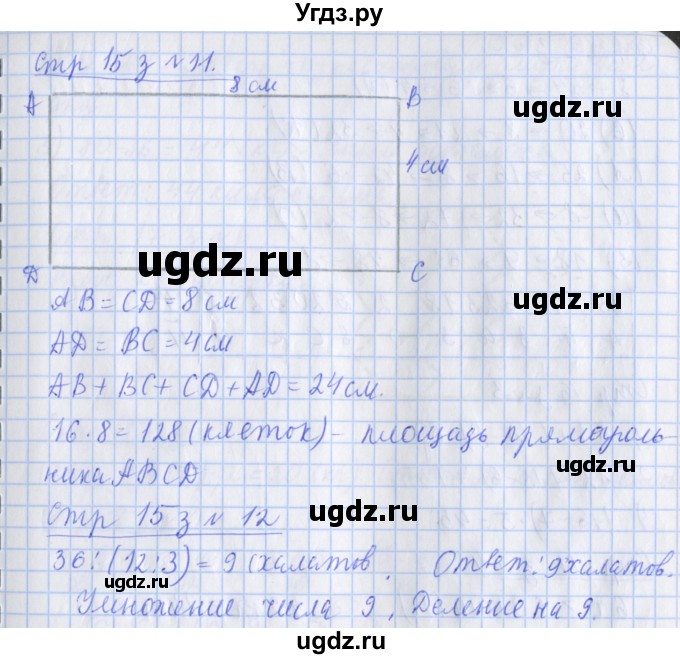 Угдз.ру
Стр 15 з № 11.
8 см
А В
ugdz.ru
4 см
ugdz.ru
Д С
АВ = CD = 8 см
ugdz.ru
AD = BC = 4 см
АВ + ВС + CD + AD = 24 см.
16 · 8 = 128 (клеток) – площадь прямоуголь-
ника ABCD
ugdz.ru
Стр 15 з № 12
36 : (12 : 3) = 9 (халатов. Ответ: 9 халатов.
ugdz.ru
ugdz.ru
Умножение числа 9. Деление на 9.
ugdz.ru